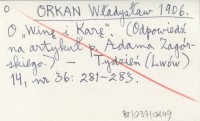 O
ORKAN Władysław 1906.
O "Winę i Karę". (Odpowiedź
na artykuł p. Adama Zagór-
skiego.) — Tydzień (Lwów)
14, nr 36: 281-283.